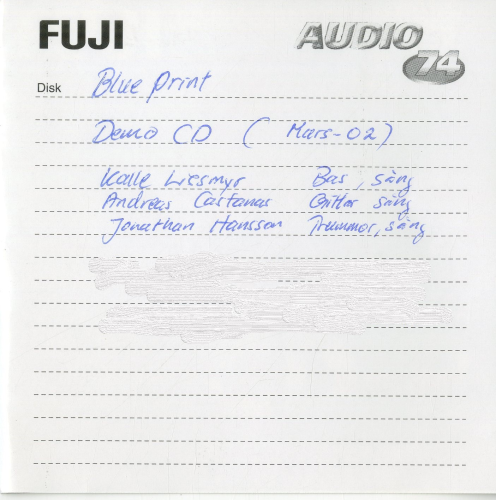 FUJI AUDIO 74
Disk Blue print
Demo CD (Mars-02)
Kalle Liesmyr Bas, sång
Andreas Castanas Gittar sång
Jonathan Hansson Trummor, sång